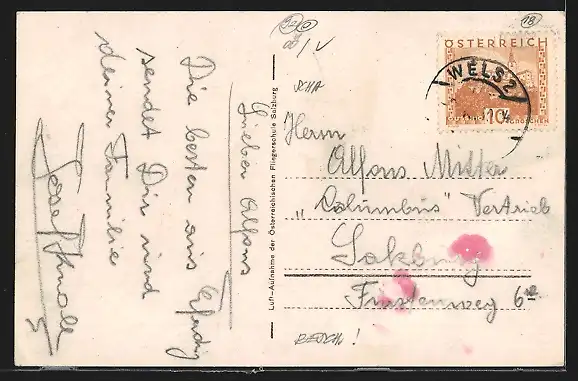 20
18
ÖSTERREICH
WELS 2
GÜSSING 10 GROSCHEN
Lieber Alfons
Die besten aus Eferding
sendet Dir und
deiner Familie
Josef Knoll
Luft-Aufnahme der Österreichischen Fliegerschule Salzburg
Herrn
Alfons Mitter
„Columbus" Vertrieb
Salzburg
Fürstenweg 6